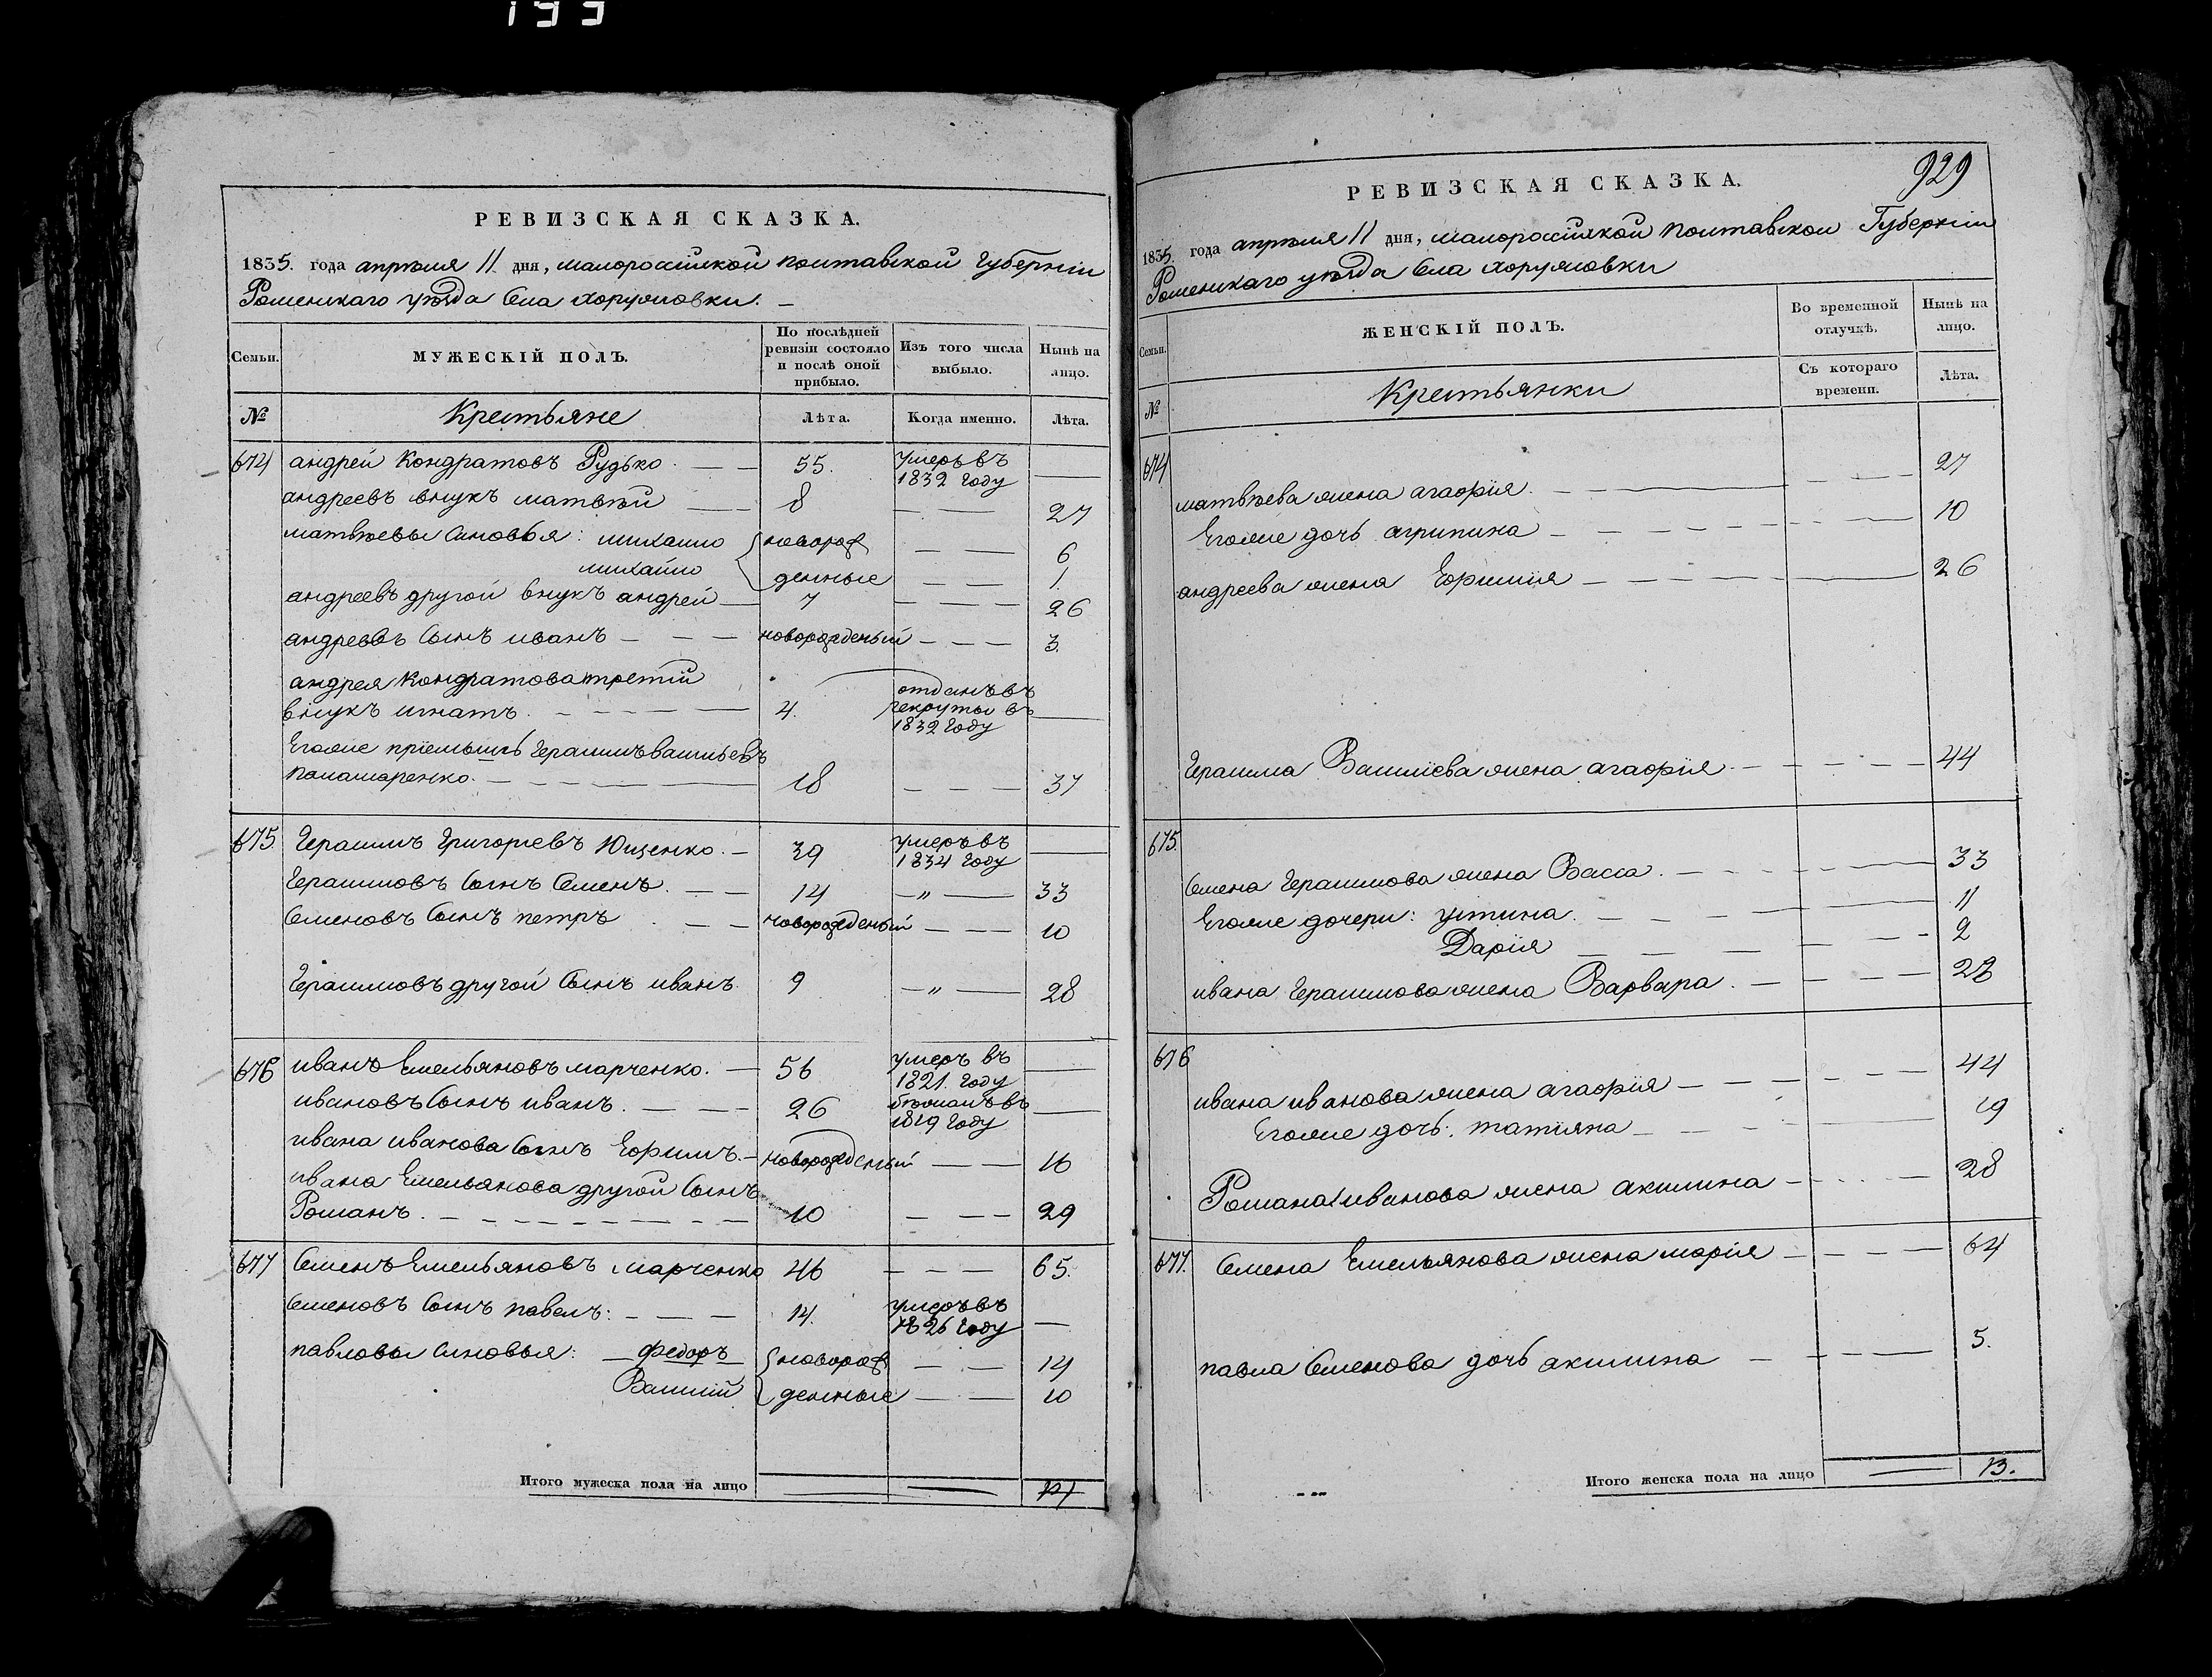 РЕВИЗСКАЯ СКАЗКА.
1835. года апрѣля 11. дня, малороссійской полтавской губерніи
Роменскаго уѣзда Села хоружовки. —
Семьи.
МУЖЕСКІЙ ПОЛЪ.
По послѣдней ревизіи состояло и послѣ оной прибыло.
Изъ того числа выбыло.
Нынѣ на лицо.
№ Крестьяне Лѣта. Когда именно. Лѣта.
674 андрей Кондратовъ Рудько. 55. умеръ въ 1832 году
андреевъ внукъ матвѣй 8 27
матвѣевы Сыновья: михайло {новорож 6
михайло денные 1.
андреевъ другой внукъ андрей 7 26
андреевъ Сынъ иванъ новорожденый 3.
андрея Кондратова третій
внукъ игнатъ. 4. отданъ въ рекруты въ 1832 году
Егоже пріемышъ Герасимъ васильевъ
паламаренко. 18 37
675 Герасимъ Григорьевъ Ющенко. 39 умеръ въ 1834 году
Герасимовъ Сынъ Семенъ. 14 —„— 33
Семеновъ Сынъ петръ новорожденый 10
Герасимовъ другой Сынъ иванъ. 9 —„— 28
676 иванъ Емельяновъ марченко. 56 умеръ въ 1821. году
ивановъ Сынъ иванъ. 26 бѣжалъ въ 1819 году
ивана иванова Сынъ Ефимъ. новорожденый 16
ивана Емельянова другой Сынъ
Романъ. 10 29
677 Семенъ Емельяновъ марченко 46 65.
Семеновъ Сынъ павелъ: 14. умеръ въ 1826 году
павловы Сыновья: федоръ {новорож 14
Василій денные 10
Итого мужеска пола на лицо 14
929
РЕВИЗСКАЯ СКАЗКА.
1835. года апрѣля 11 дня, малороссійской полтавской Губерніи
Роменскаго уѣзда Села хоружовки
Семьи.
ЖЕНСКІЙ ПОЛЪ.
Во временной отлучкѣ.
Нынѣ на лицо.
№ Крестьянки Съ котораго времени. Лѣта.
674
матвѣева жена агафія. 27
Егоже дочь агрипина 10
андреева жена Ефимія 26
Герасима Васильева жена агафія. 44
675
Семена Герасимова жена Васса. 33
Егоже дочери: устина. 11
Дарія 2
ивана Герасимова жена Варвара. 28
676
ивана иванова жена агафія 44
Егоже дочь: татіяна 19
Романа иванова жена акилина 28
677. Семена Емельянова жена марія 64
павла Семенова дочь акилина 5.
Итого женска пола на лицо 13.